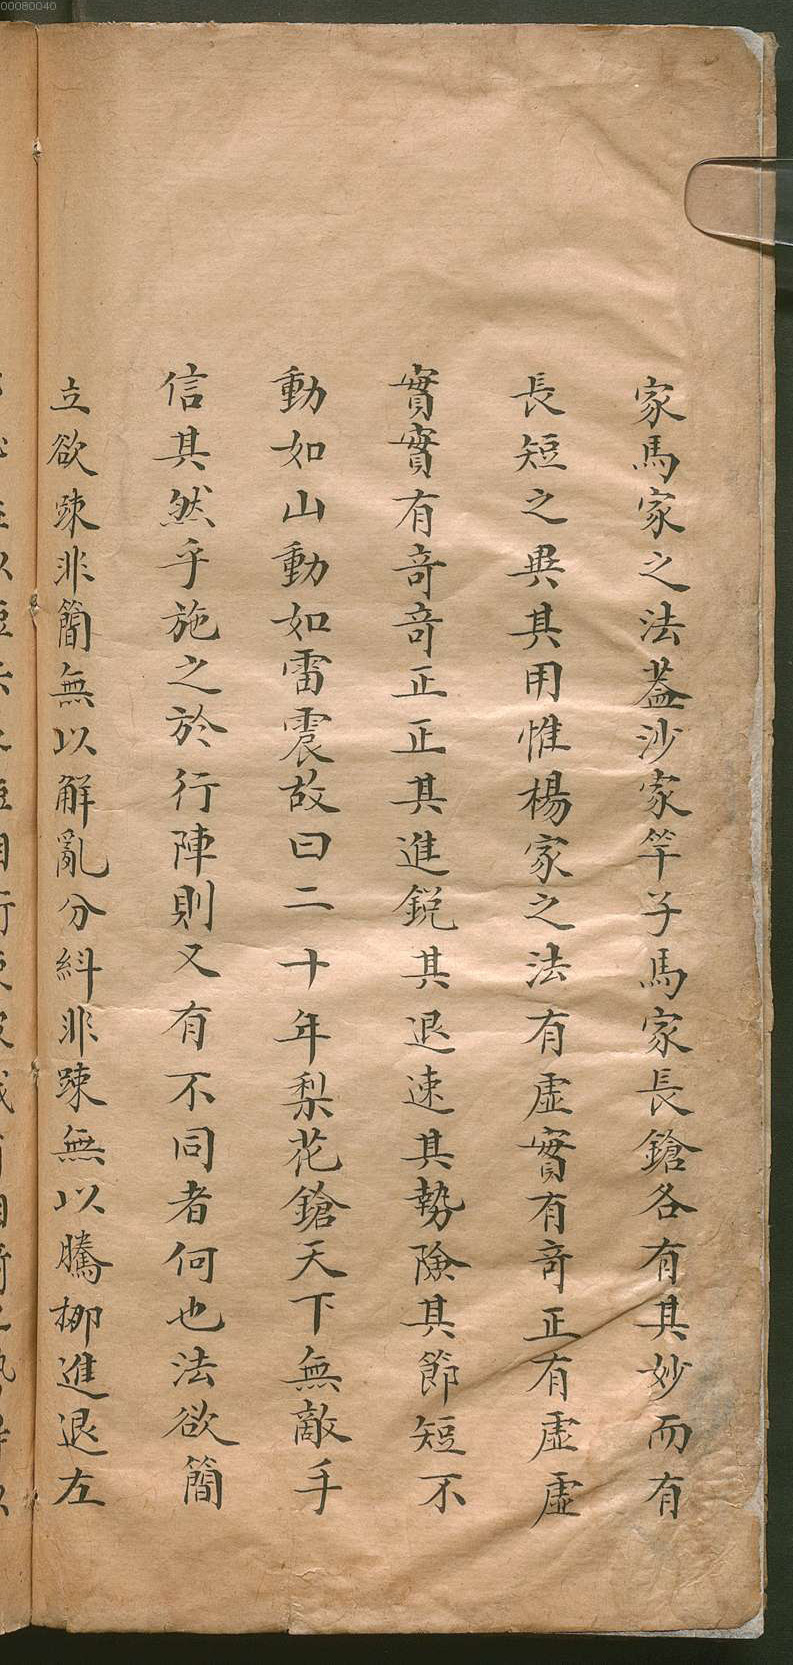 00080040
家馬家之法蓋沙家竿子馬家長鎗各有其妙而有
長短之異其用惟楊家之法有虛實有竒正有虛虛
實實有竒竒正正其進鋭其退速其勢險其節短不
動如山動如雷震故曰二十年梨花鎗天下無敵手
信其然乎施之於行陣則又有不同者何也法欲簡
立欲踈非簡無以解亂分糾非踈無以騰挪進退左